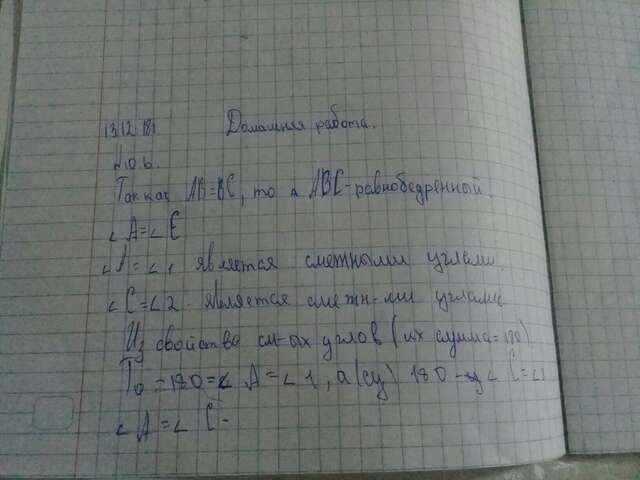 13.12.18г Домашняя работа.
№ 10.6.
Так как AB=BC, то △ ABC-равнобедренный.
∠A=∠C
∠A=∠1 является смежными углами.
∠C=∠2. является смежн-ми углами
Из свойства см-ых углов (их сумма=180)
То 180 ∠A=∠1, а 180 ∠C=∠2
∠A=∠C-